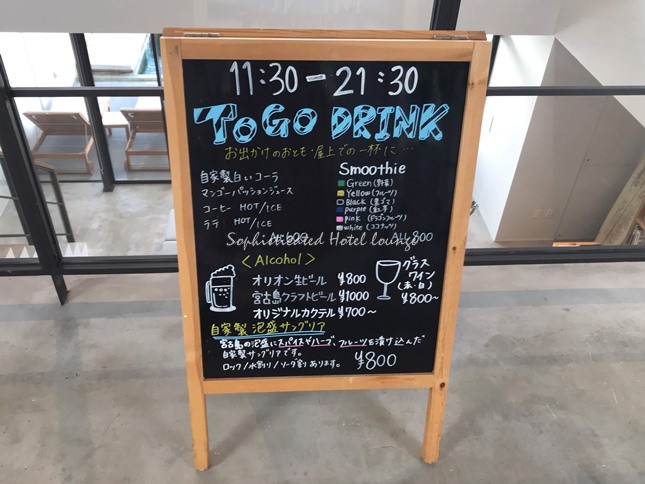 11:30-21:30
TOGO DRINK
お出かけのおとも・屋上での一杯に…
自家製白いコーラ
マンゴーパッションジュース
コーヒー HOT/ICE
ラテ HOT/ICE
ALL 600
Smoothie
Green (野菜)
Yellow (フルーツ)
Black (黒ゴマ)
purple (紅芋)
pink (ドラゴンフルーツ)
white (ココナッツ)
ALL 800
Sophisticated Hotel lounge
<Alcohol>
オリオン生ビール ¥800
宮古島クラフトビール ¥1000
オリジナルカクテル ¥700~
グラス
ワイン
(赤・白)
¥800~
自家製 泡盛サングリア
宮古島の泡盛にスパイスやハーブ、フルーツを漬け込んだ
自家製サングリアです。
ロック/水割り/ソーダ割あります。 ¥800